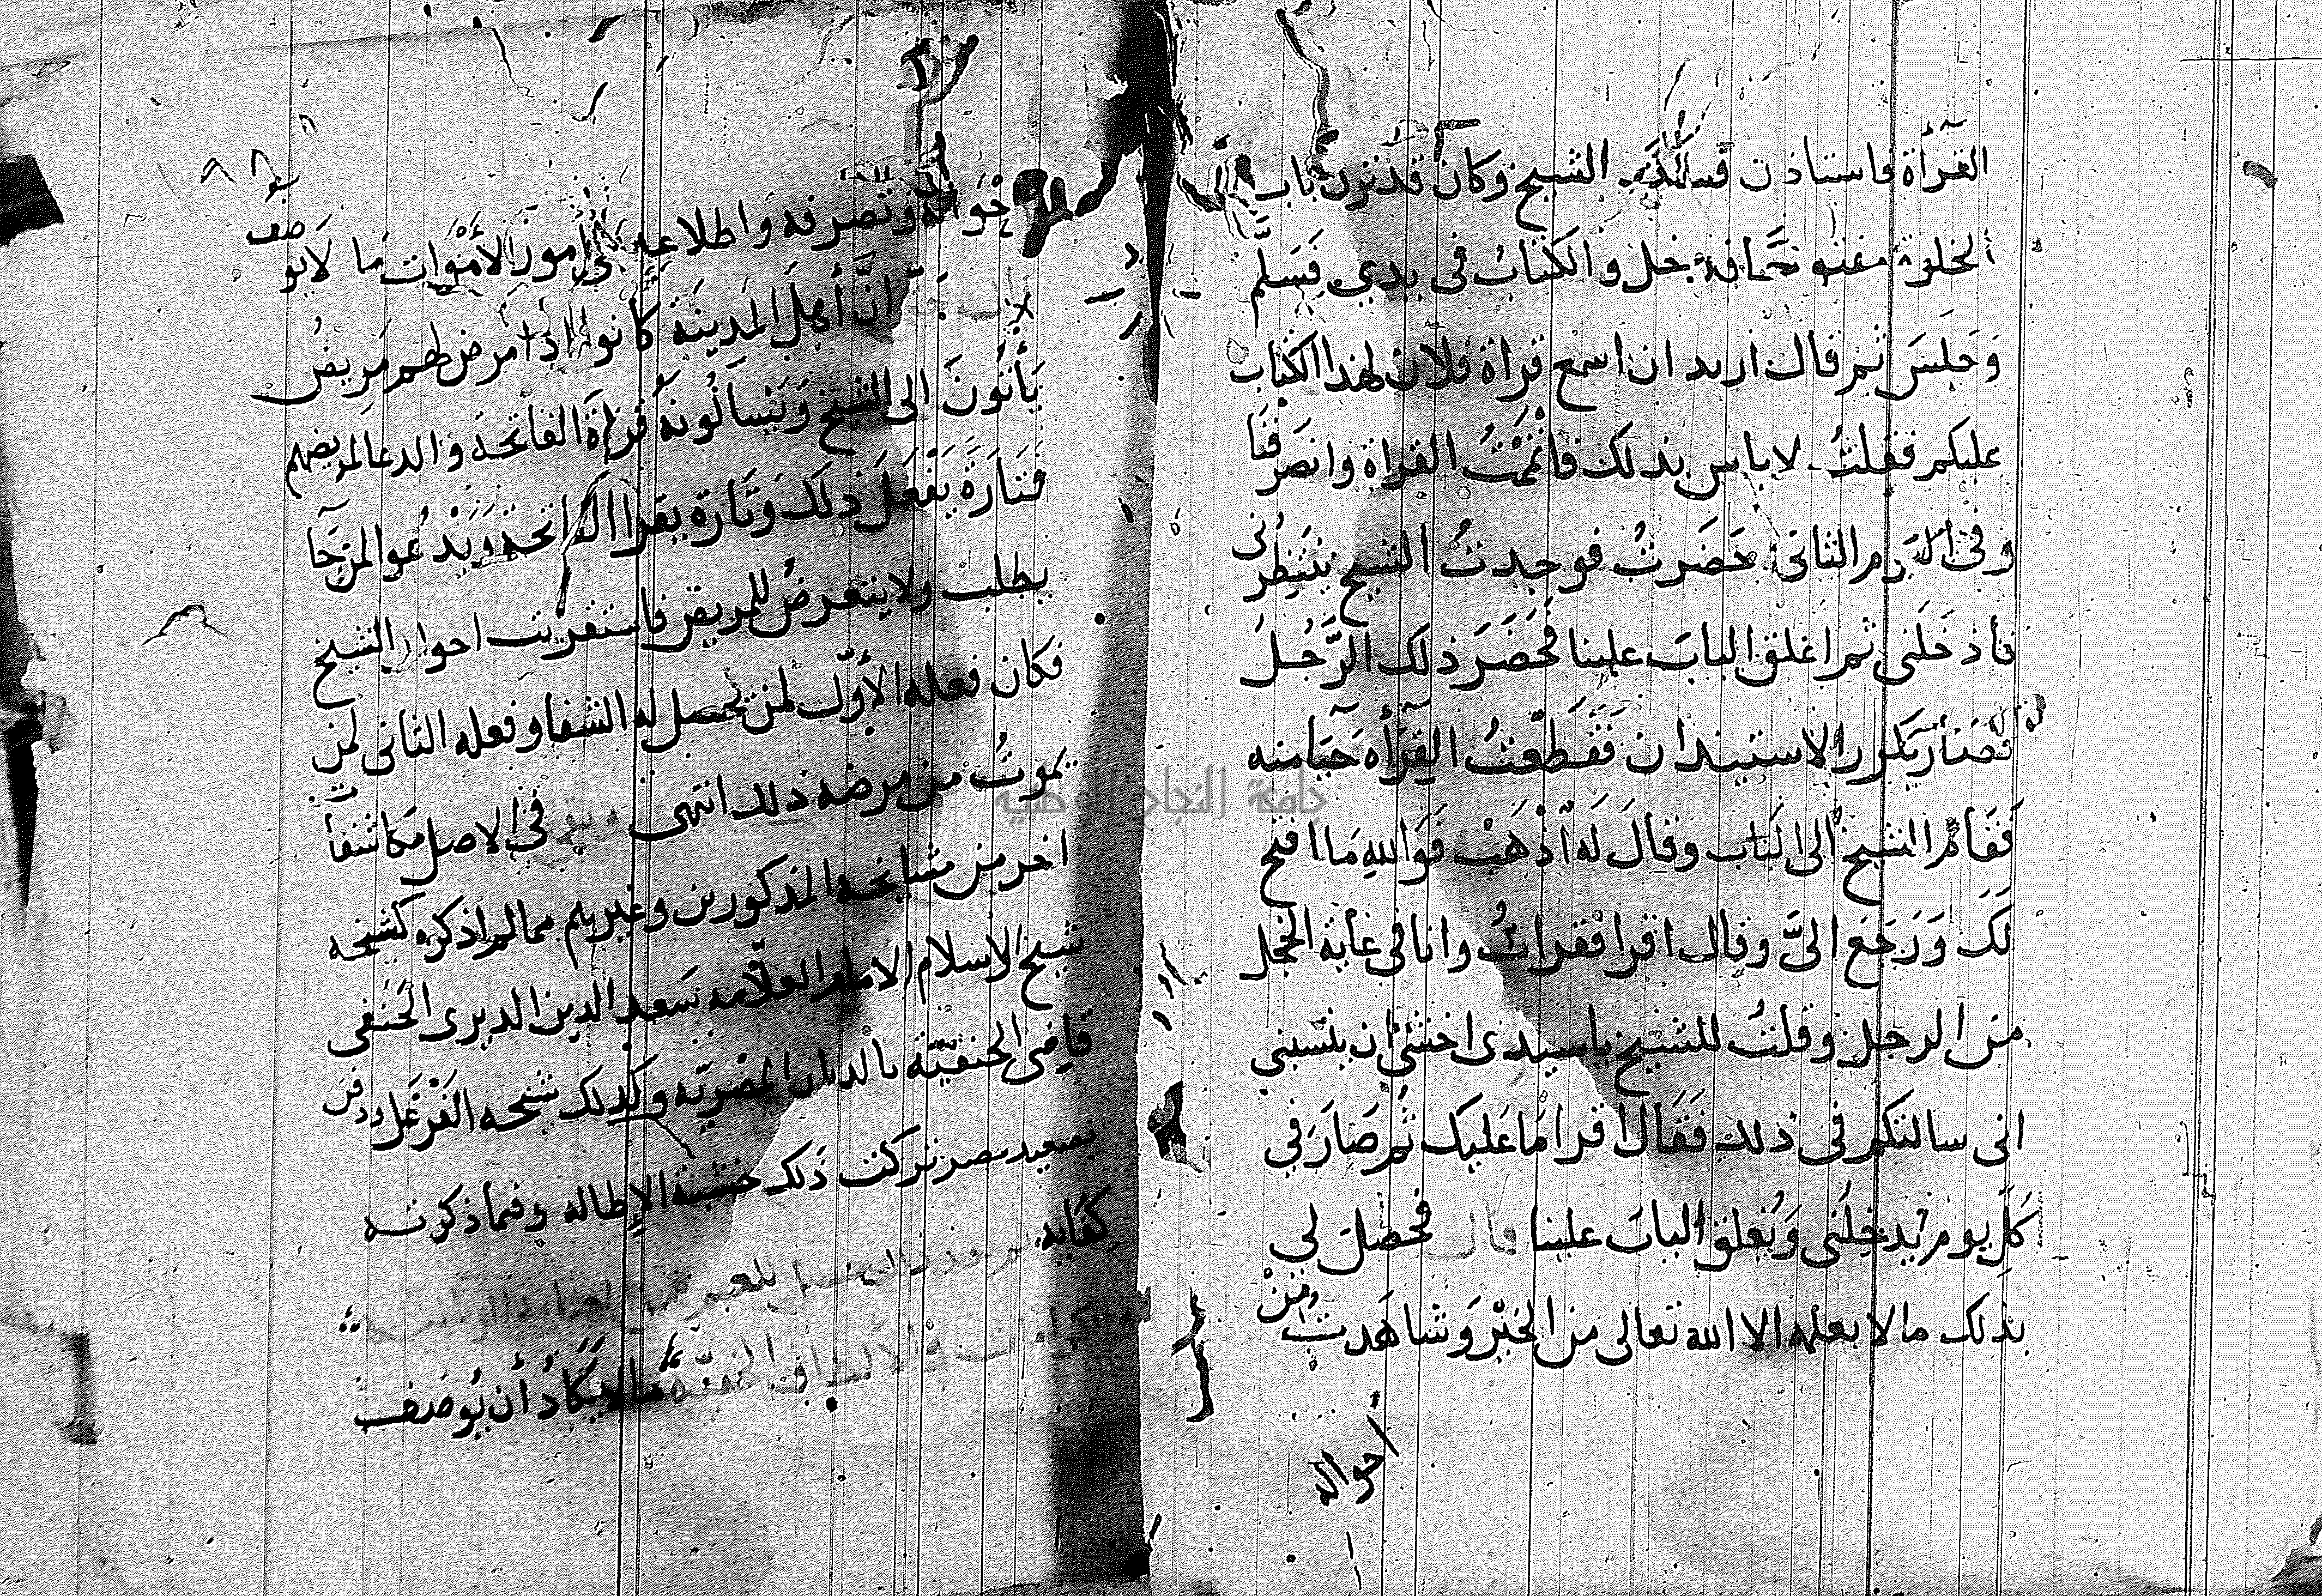 القرآة فاستاذن الشيخ وكان قد نزل باب
الخلوة دخل والكتاب في يدي فسلم
وجلس ثم قال اريد ان اسمع قراة فلان لهذا الكتاب
عليكم فقلت لا باس بذلك فاتممت القراة وانصرفنا
وفي اليوم الثاني حضرت فوجدت الشيخ ينتظرني
فأدخلني ثم اغلق الباب علينا فحضر ذلك الرجل
فصار يكرر الاستيذان فقطعت القرآة حيا منه
فقام الشيخ الى الباب وقال له اذهب فوالله ما افتح
لك ورجع اليّ وقال اقرا فقرات وانا في غاية الخجل
من الرجل وقلت للشيخ ياسيدى اخشى ان ينسبني
انى سالتكم في ذلك فقال اقرا ما عليك ثم صار في
كل يوم يدخلني ويغلق الباب علينا قال فحصل لي
بذلك ما لا يعلمه الا الله تعالى من الخير وشاهدت من
احواله
احواله وتصرفه واطلاعه على امور الأموات ما لا يوصف
انّ أهل المدينة كانوا اذا مرض لهم مريض
يأتون الى الشيخ ويسالونه قراة الفاتحة والدعا لمريضهم
فتارة يفعل ذلك وتارة يقرا الفاتحة ويدعوا لمن جآ
يطلب ولا يتعرض للمريض فاستقريت احوال الشيخ
فكان فعله الأوّل لمن يحصل له الشفا وفعله الثاني لمن
يموت من مرضه ذلك انتهى في الاصل مكاشفات
اخر من مشايخه المذكورين وغيرهم مما لم اذكره كشيخه
شيخ الاسلام الامام العلّامه سعد الدين الديرى الحنفي
قاضي الحنفيّة بالديار المصريّه وكذلك شيخه الفرغل ودفن
بصعيد مصر تركت ذلك خشية الإطاله وفيما ذكرته
كفايه حصل للعبد من العناية الربانيه
والكرامات والألطاف الخفيّة ما لا يكاد أن يوصف